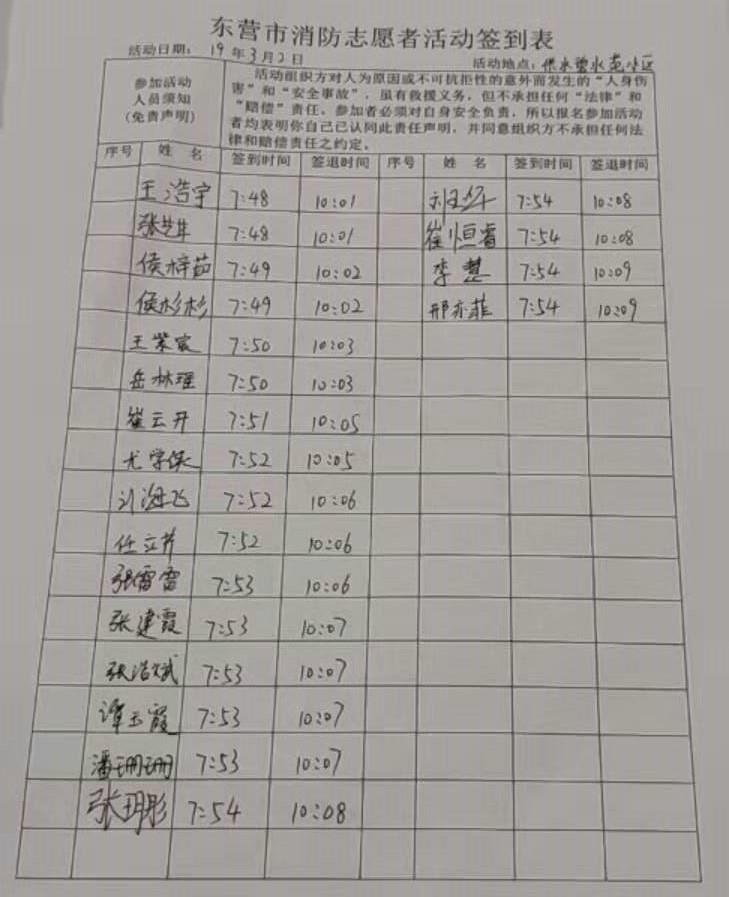 东营市消防志愿者活动签到表
活动日期: 19年3月2日 活动地点:
参加活动人员须知(免责声明)
活动组织方对人为原因或不可抗拒性的意外而发生的“人身伤
害”和“安全事故”,虽有救援义务,但不承担任何“法律”和
“赔偿”责任。参加者必须对自身安全负责,所以报名参加活动
者均表明你自己已认同此责任声明,并同意组织方不承担任何法
律和赔偿责任之约定。
序号 姓名 签到时间 签退时间 序号 姓名 签到时间 签退时间
王浩宇 7:48 10:01 7:54 10:08
7:48 10:01 崔恒睿 7:54 10:08
侯梓茹 7:49 10:02 李慧 7:54 10:09
侯杉杉 7:49 10:02 邢亦菲 7:54 10:09
王紫宸 7:50 10:03
岳林瑶 7:50 10:03
崔云开 7:51 10:05
尤学保 7:52 10:05
刘海飞 7:52 10:06
任立芹 7:52 10:06
张雷雷 7:53 10:06
张建霞 7:53 10:07
张浩斌 7:53 10:07
谭玉霞 7:53 10:07
潘珊珊 7:53 10:07
张玥彤 7:54 10:08